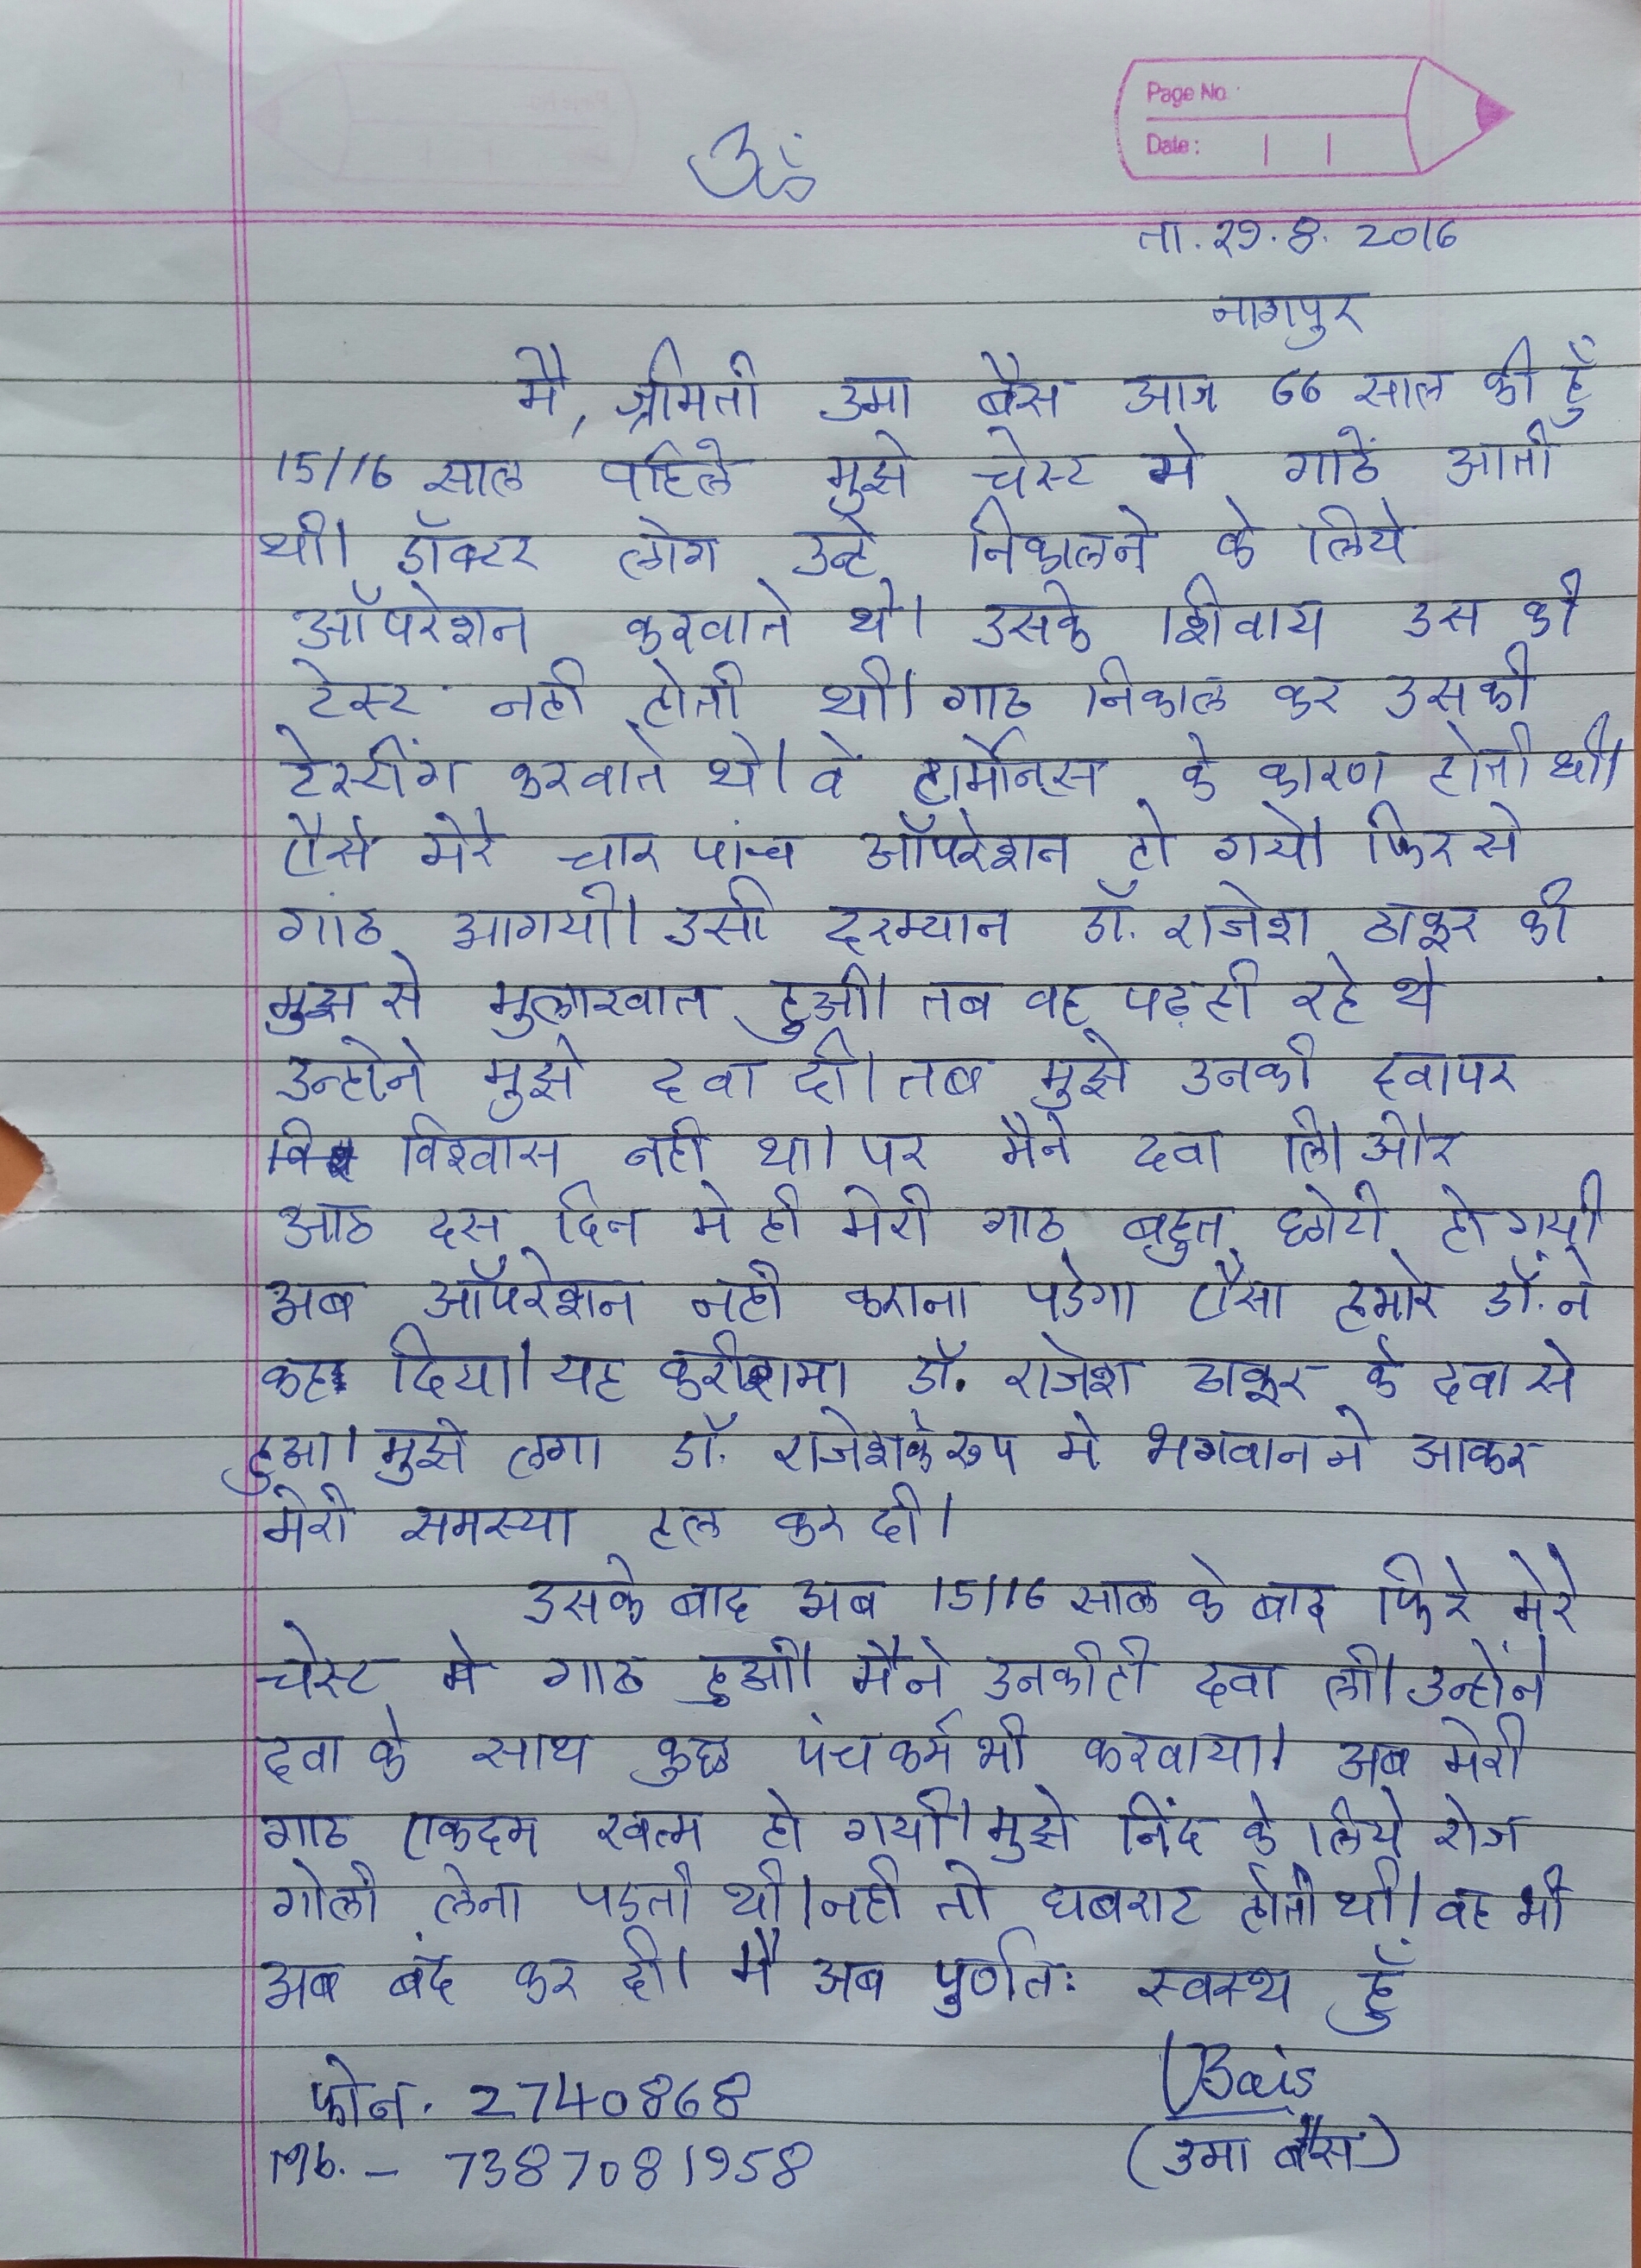 Page No.
Date:
ॐ
ता. 29.8. 2016
नागपुर
मै, श्रीमती उमा बैस आज 66 साल की हूँ
15/16 साल पहिले मुझे चेस्ट मे गाठें आती
थी। डॉक्टर लोग उन्हे निकालने के लिये
ऑपरेशन करवाते थे। उसके शिवाय उस की
टेस्ट नही होती थी। गाठ निकाल कर उसकी
टेस्टींग करवाते थे। वे हार्मोन्स के कारण होती थी।
ऐसे मेरे चार पांच ऑपरेशन हो गये। फिर से
गांठ आगयी। उसी दरम्यान डॉ. राजेश ठाकूर की
मुझ से मुलाखात हुओ। तब वह पढ़ ही रहे थे
उन्होने मुझे दवा दी। तब मुझे उनकी दवापर
विश्वास नही था। पर मैने दवा ली। और
आठ दस दिन मे ही मेरी गाठ बहुत छोटी हो गयी
अब ऑपरेशन नही कराना पडेगा ऐसा हमारे डॉ. ने
कह दिया। यह करीशमा डॉ. राजेश ठाकूर के दवा से
हुआ। मुझे लगा डॉ. राजेशके रुप मे भगवान ने आकर
मेरी समस्या हल कर दी।
उसके बाद अब 15/16 साल के बाद फिरे मेरे
चेस्ट मे गाठ हुओ। मैने उनकीही दवा ली। उन्होंने
दवा के साथ कुछ पंचकर्म भी करवाया। अब मेरी
गाठ एकदम खत्म हो गयी। मुझे निंद के लिये रोज
गोली लेना पडती थी। नही तो घबराट होती थी। वह भी
अब बंद कर दी। मै अब पुर्णतः स्वस्थ हूँ
फोन. 2740868
UBais
Mb. - 7387081958
(उमा बैस)